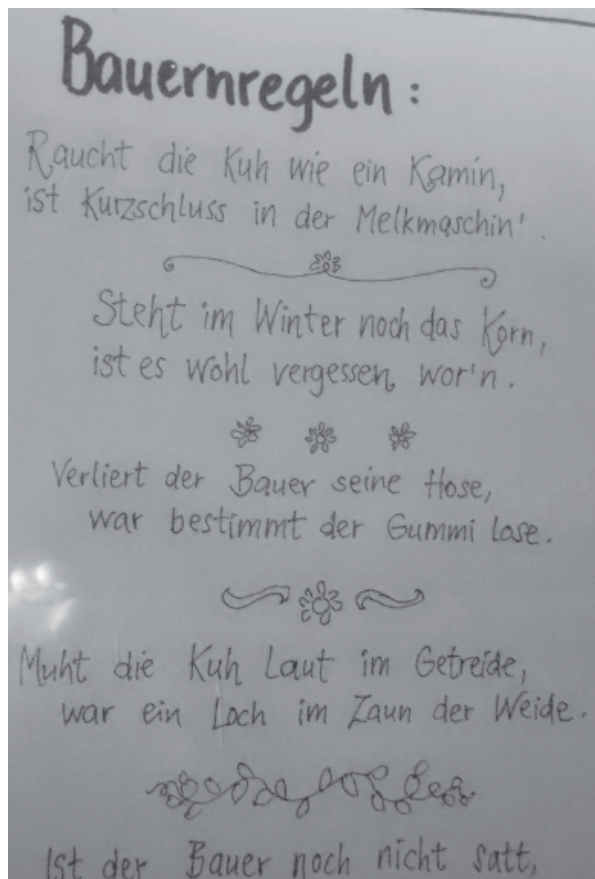 Bauernregeln:
Raucht die Kuh wie ein Kamin,
ist Kurzschluss in der Melkmaschin'.
Steht im Winter noch das Korn,
ist es wohl vergessen wor'n.
Verliert der Bauer seine Hose,
war bestimmt der Gummi lose.
Muht die Kuh Laut im Getreide,
war ein Loch im Zaun der Weide.
Ist der Bauer noch nicht satt,